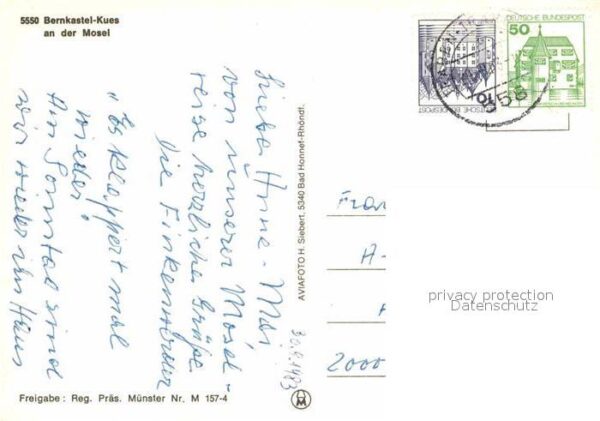 5550 Bernkastel-Kues
an der Mosel
Liebe Anne-Mai
von unserer Mosel-
reise herzliche Grüße.
Die Finkenwärner
"Es klappert mal
wieder."
Am Sonntag sind
wir wieder im Haus
AVIAFOTO H. Siebert, 5340 Bad Honnef-Rhöndf.
30.9.1983
50
DEUTSCHE BUNDESPOST
DEUTSCHE BUNDESPOST
958
Frau
A-
2000
privacy protection
Datenschutz
Freigabe: Reg. Präs. Münster Nr. M 157-4